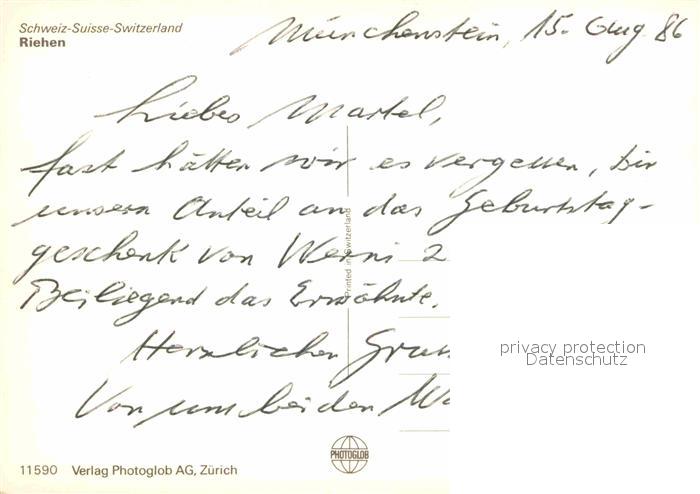 Schweiz-Suisse-Switzerland
Riehen
Münchenstein, 15. Aug. 86
Liebes Martel,
fast hätten wir es vergessen, Dir
unsern Anteil an das Geburtstag-
geschenk von Werni
Beiliegend das Erwähnte.
Herzlichen Gruss
Von uns beiden
Printed in Switzerland
privacy protection
Datenschutz
PHOTOGLOB
11590 Verlag Photoglob AG, Zürich